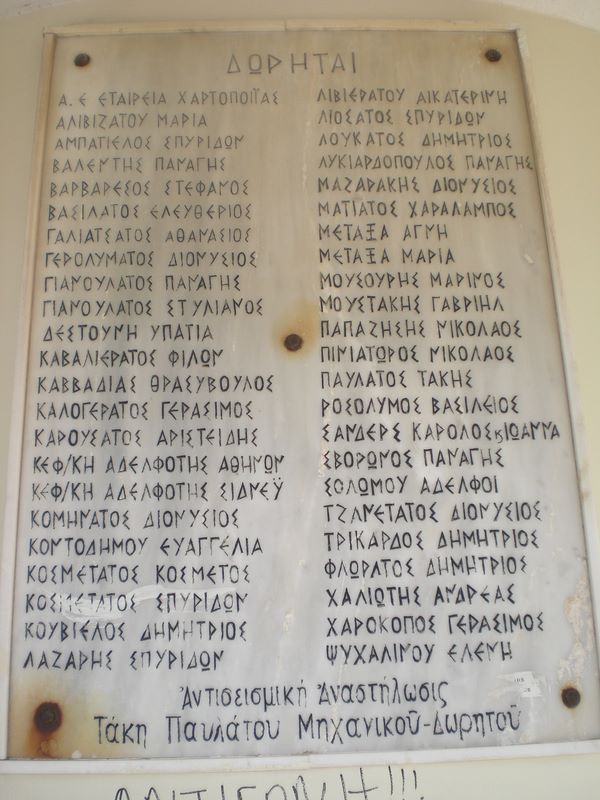 ΔΩΡΗΤΑΙ
Α.Ε ΕΤΑΙΡΕΙΑ ΧΑΡΤΟΠΟΙΪΑΣ
ΑΛΙΒΙΖΑΤΟΥ ΜΑΡΙΑ
ΑΜΠΑΤΙΕΛΟΣ ΣΠΥΡΙΔΩΝ
ΒΑΛΕΝΤΗΣ ΠΑΝΑΓΗΣ
ΒΑΡΒΑΡΕΣΟΣ ΣΤΕΦΑΝΟΣ
ΒΑΣΙΛΑΤΟΣ ΕΛΕΥΘΕΡΙΟΣ
ΓΑΛΙΑΤΣΑΤΟΣ ΑΘΑΝΑΣΙΟΣ
ΓΕΡΟΛΥΜΑΤΟΣ ΔΙΟΝΥΣΙΟΣ
ΓΙΑΝΟΥΛΑΤΟΣ ΠΑΝΑΓΗΣ
ΓΙΑΝΟΥΛΑΤΟΣ ΣΤΥΛΙΑΝΟΣ
ΔΕΣΤΟΥΝΗ ΥΠΑΤΙΑ
ΚΑΒΑΛΙΕΡΑΤΟΣ ΦΙΛΩΝ
ΚΑΒΒΑΔΙΑΣ ΘΡΑΣΥΒΟΥΛΟΣ
ΚΑΛΟΓΕΡΑΤΟΣ ΓΕΡΑΣΙΜΟΣ
ΚΑΡΟΥΣΑΤΟΣ ΑΡΙΣΤΕΙΔΗΣ
ΚΕΦ/ΚΗ ΑΔΕΛΦΟΤΗΣ ΑΘΗΝΩΝ
ΚΕΦ/ΚΗ ΑΔΕΛΦΟΤΗΣ ΣΙΔΝΕΫ
ΚΟΜΗΝΑΤΟΣ ΔΙΟΝΥΣΙΟΣ
ΚΟΝΤΟΔΗΜΟΥ ΕΥΑΓΓΕΛΙΑ
ΚΟΣΜΕΤΑΤΟΣ ΚΟΣΜΕΤΟΣ
ΚΟΣΜΕΤΑΤΟΣ ΣΠΥΡΙΔΩΝ
ΚΟΥΒΙΕΛΟΣ ΔΗΜΗΤΡΙΟΣ
ΛΑΖΑΡΗΣ ΣΠΥΡΙΔΩΝ
ΛΙΒΙΕΡΑΤΟΥ ΑΙΚΑΤΕΡΙΝΗ
ΛΙΟΣΑΤΟΣ ΣΠΥΡΙΔΩΝ
ΛΟΥΚΑΤΟΣ ΔΗΜΗΤΡΙΟΣ
ΛΥΚΙΑΡΔΟΠΟΥΛΟΣ ΠΑΝΑΓΗΣ
ΜΑΖΑΡΑΚΗΣ ΔΙΟΝΥΣΙΟΣ
ΜΑΤΙΑΤΟΣ ΧΑΡΑΛΑΜΠΟΣ
ΜΕΤΑΞΑ ΑΓΝΗ
ΜΕΤΑΞΑ ΜΑΡΙΑ
ΜΟΥΣΟΥΡΗΣ ΜΑΡΙΝΟΣ
ΜΟΥΣΤΑΚΗΣ ΓΑΒΡΙΗΛ
ΠΑΠΑΖΗΣΗΣ ΝΙΚΟΛΑΟΣ
ΠΙΝΙΑΤΩΡΟΣ ΝΙΚΟΛΑΟΣ
ΠΑΥΛΑΤΟΣ ΤΑΚΗΣ
ΡΟΣΟΛΥΜΟΣ ΒΑΣΙΛΕΙΟΣ
ΣΑΝΔΕΡΣ ΚΑΡΟΛΟΣ ϗ ΙΩΑΝΝΑ
ΣΒΟΡΩΝΟΣ ΠΑΝΑΓΗΣ
ΣΟΛΩΜΟΥ ΑΔΕΛΦΟΙ
ΤΖΑΝΕΤΑΤΟΣ ΔΙΟΝΥΣΙΟΣ
ΤΡΙΚΑΡΔΟΣ ΔΗΜΗΤΡΙΟΣ
ΦΛΩΡΑΤΟΣ ΔΗΜΗΤΡΙΟΣ
ΧΑΛΙΩΤΗΣ ΑΝΔΡΕΑΣ
ΧΑΡΟΚΟΠΟΣ ΓΕΡΑΣΙΜΟΣ
ΨΥΧΑΛΙΝΟΥ ΕΛΕΝΗ
Ἀντισεισμική Ἀναστήλωσις
Τάκη Παυλάτου Μηχανικοῦ-Δωρητοῦ